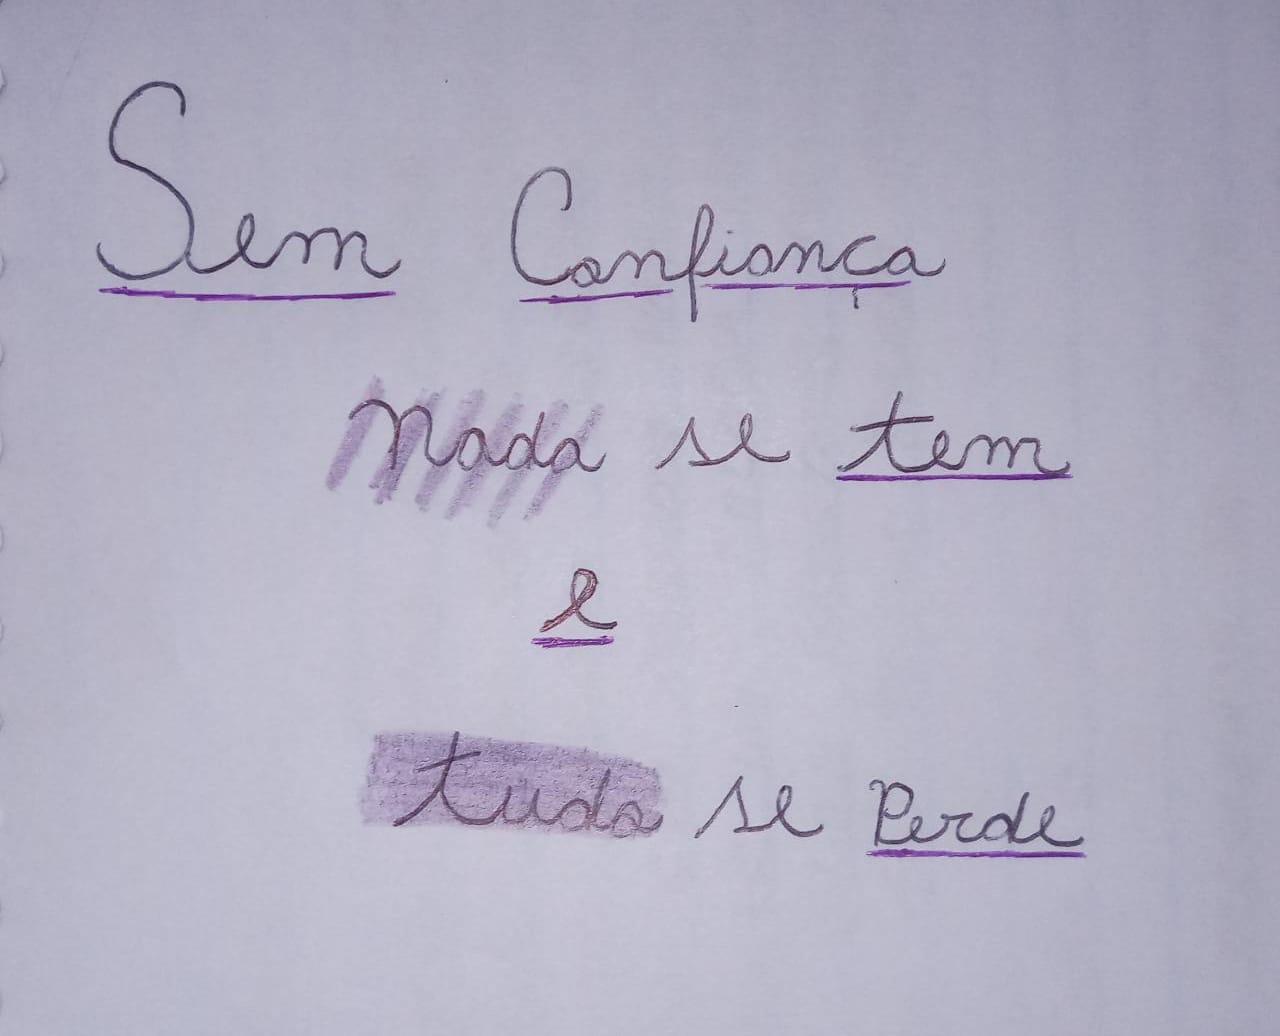 Sem Confiança
nada se tem
e
tudo se Perde